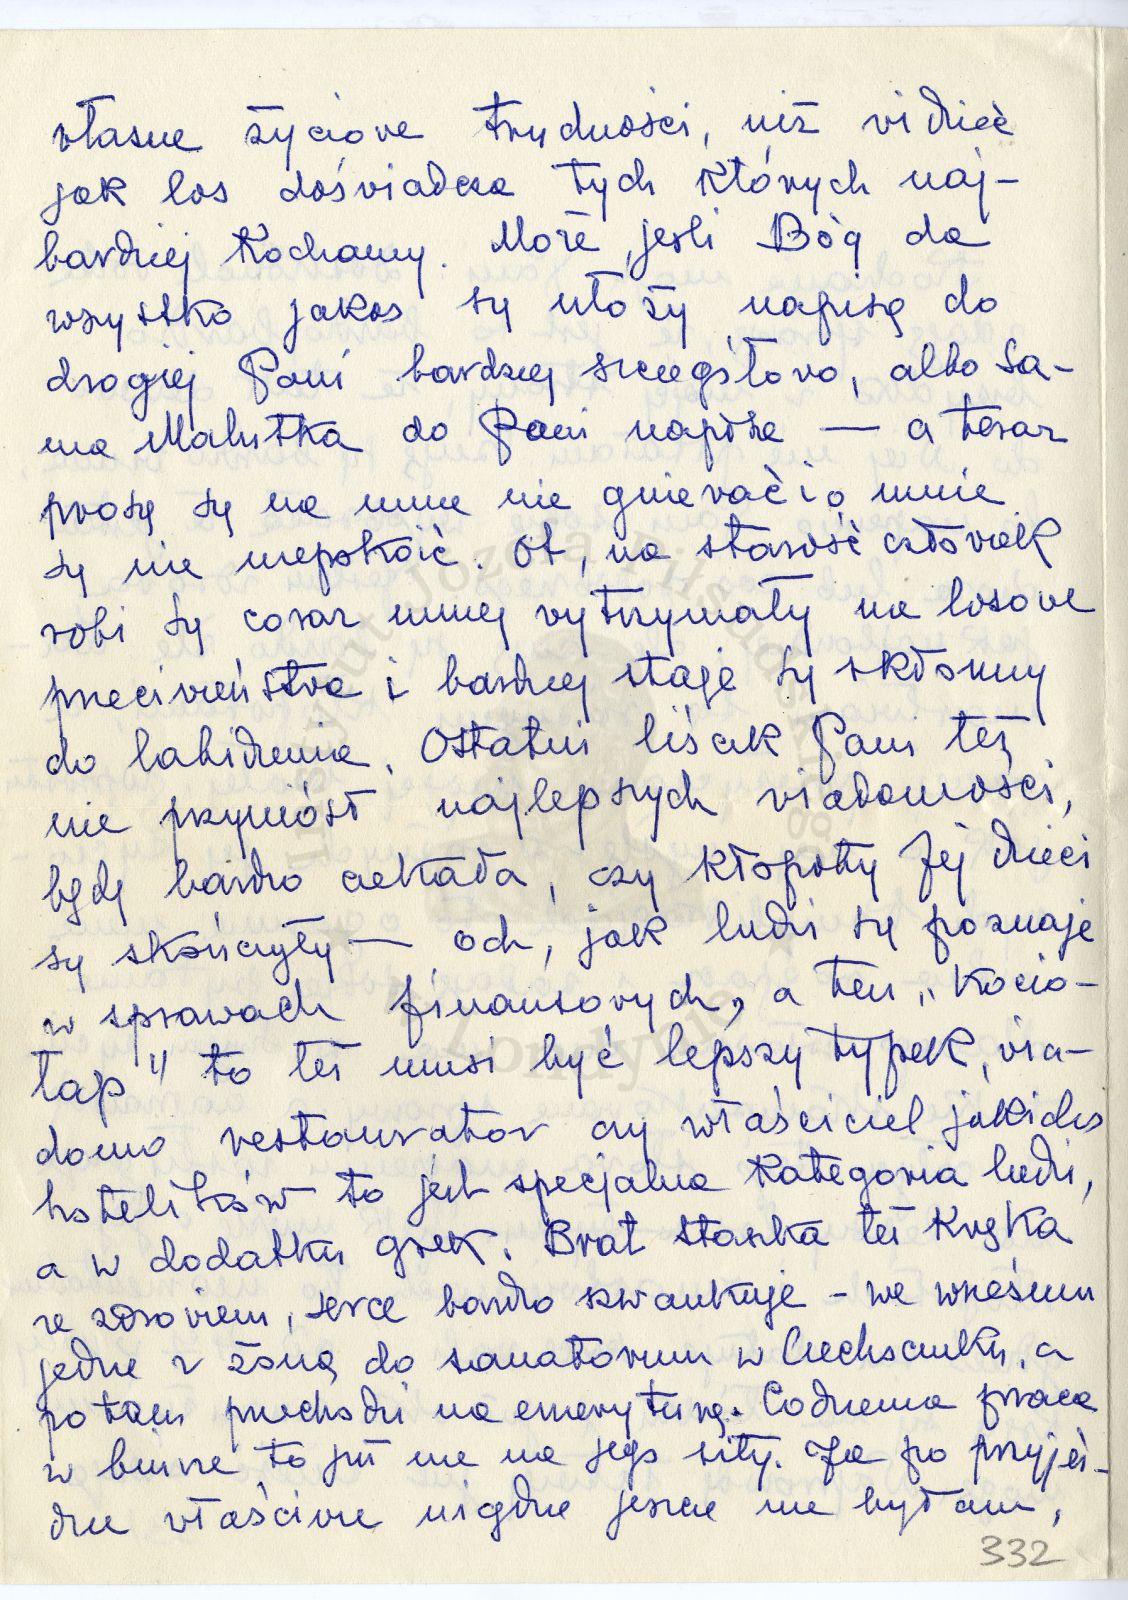 własne życiowe trudności, niż widzieć
jak los doświadcza tych których naj-
bardziej kochamy. Może, jeśli Bóg da
wszystko jakoś się ułoży napiszę do
drogiej Pani bardziej szczegółowo, albo sa-
ma Malutka do Pani napisze — a teraz
proszę się na mnie nie gniewać i o mnie
się nie niepokoić. Ot, na starość człowiek
robi się coraz mniej wytrzymały na losowe
przeciwieństwa i bardziej staje się skłonny
do labidzenia. Ostatni liścik Pani też
nie przyniósł najlepszych wiadomości,
będę bardzo czekała, czy kłopoty Jej dzieci
się skończyły — och, jak ludzi się poznaje
w sprawach finansowych, a ten „Kocio-
łap" to też musi być lepszy typek, wia-
domo restaurator czy właściciel jakichś
hotelików to jest specjalna kategoria ludzi,
a w dodatku grek. Brat Staszka też krucho
ze zdrowiem, serce bardzo szwankuje – we wrześniu
jedzie z żoną do sanatorium w Ciechocinku, a
potem przechodzi na emeryturę. Codzienna praca
w biurze to już nie na jego siły. Ja po przyjeź-
dzie właściwie nigdzie jeszcze nie byłam,
332
Instytut Józefa Piłsudskiego
w Londynie